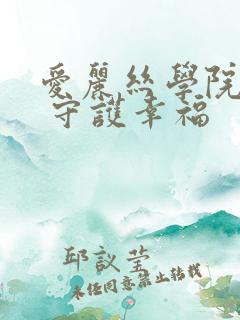 愛麗絲學院
守護幸福
邱議瑩
未經同意禁止轉載